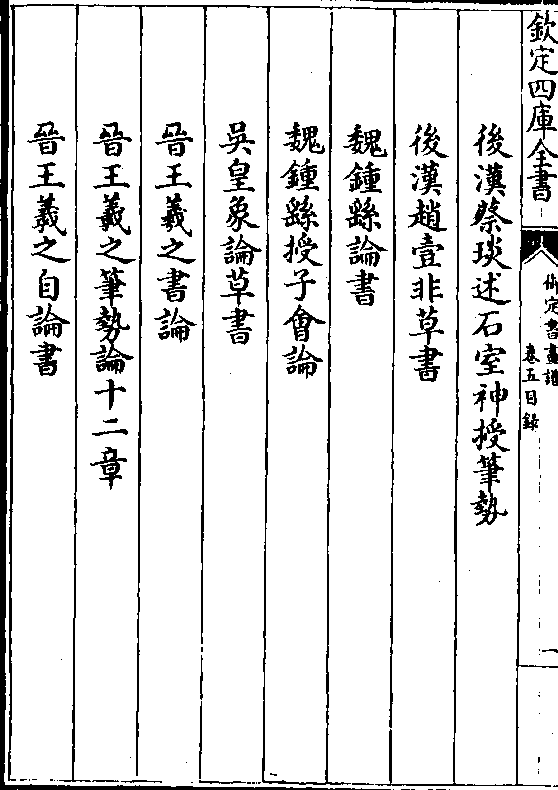 欽定四庫全書
御定書畫譜
卷五目錄
一
後漢蔡琰述石室神授筆勢
後漢趙壹非草書
魏鍾繇論書
魏鍾繇授子會論
吳皇象論草書
晉王羲之書論
晉王羲之筆勢論十二章
晉王羲之自論書